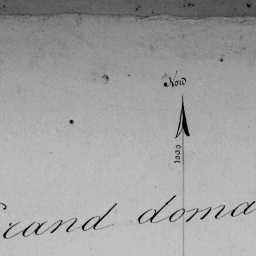 Nord
1000
Grand doma